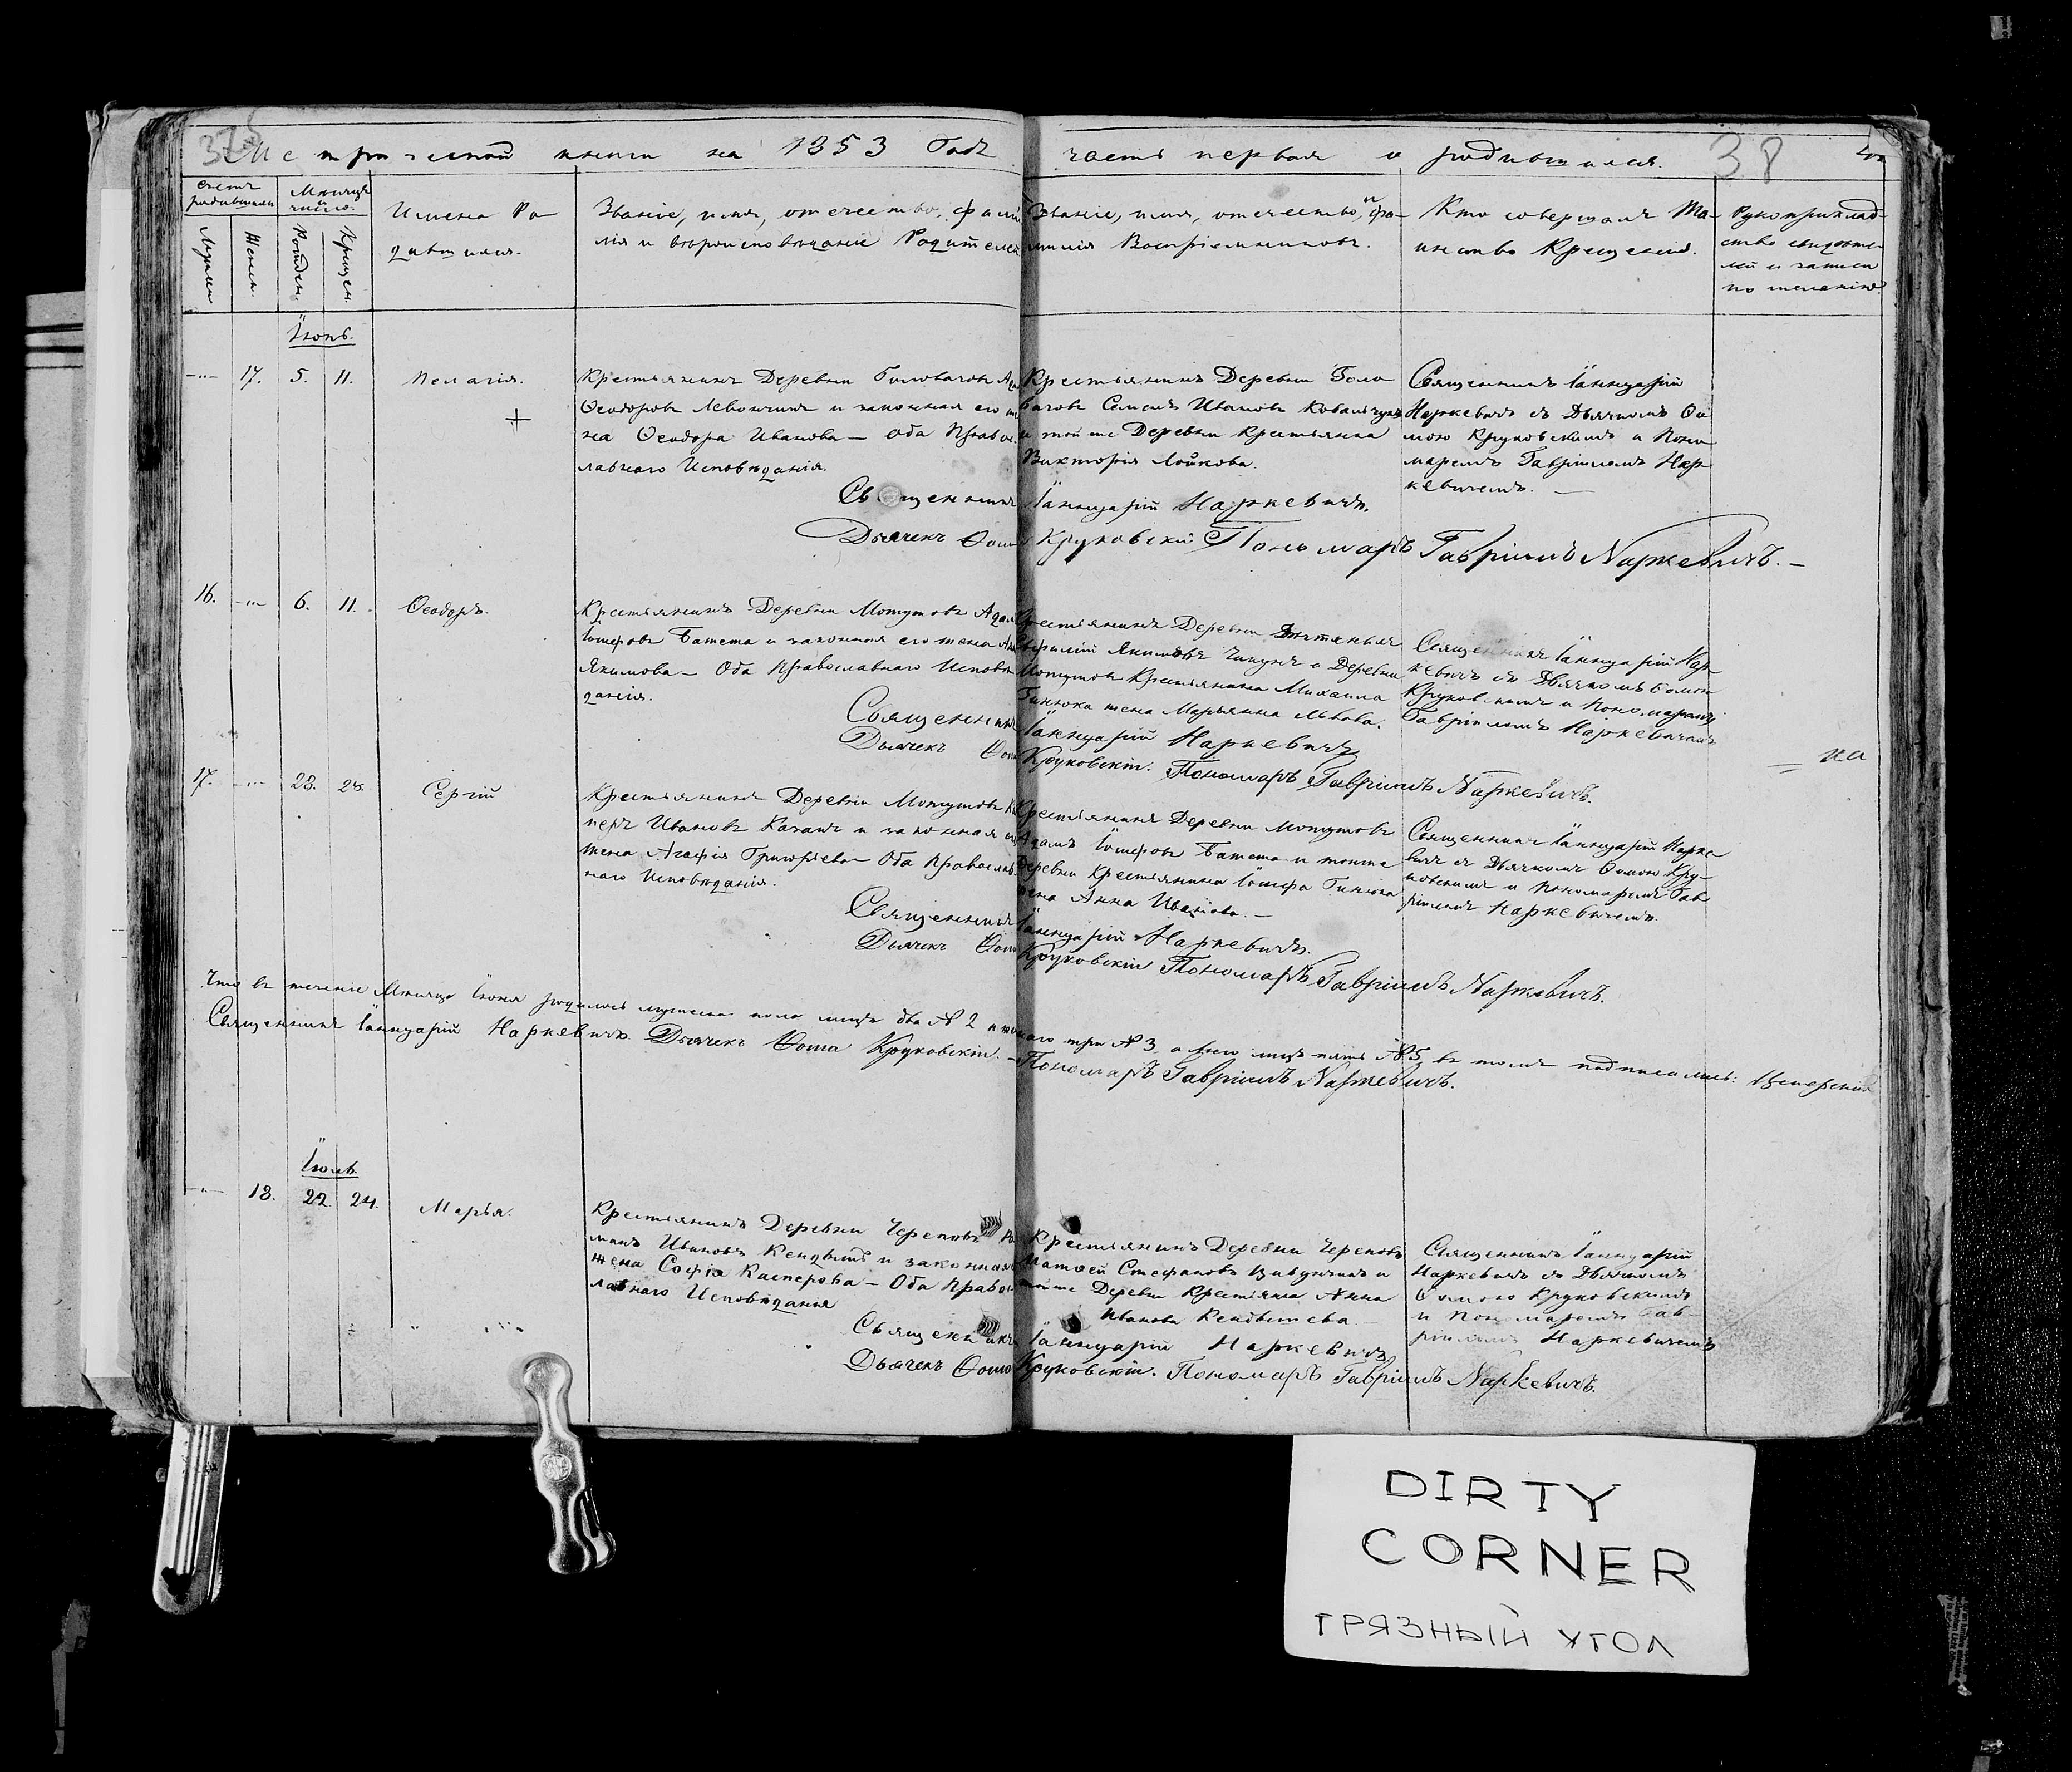 375
38
Метрической книги на 1853 Годъ часть первая о родившихся.
счетъ родившихся
Мѣсяцъ и число.
Мужеск
Женск.
Рожден.
Крещен.
Имена Ро
дившихся.
Званіе, имя, отечество, фами
лія и вѣроисповѣданіе Родителей
Званіе, имя, отечество, и фа-
милія Воспріемниковъ.
Кто совершалъ Та-
инство Крещенія.
Рукоприклад-
ство свидѣте-
лей о записи
по желанію
Іюнь.
17. 5. 11. Пелагія.
Крестьянинъ Деревни Головачовъ
Ѳеодоровъ Левончикъ и законная его
на Ѳеодора Иванова — Оба Правос
лавнаго Исповѣданія.
Крестьянинъ Деревни Голо
вачовъ Семенъ Ивановъ Ковальчукъ
и той же Деревни Крестьянка
Виктория Лойкова.
Священникъ Іаннуарій
Наркевичъ съ Дьячкомъ Ѳо
мою Круковскимъ и Поно
маремъ Гавріиломъ Нар
кевичемъ. —
Священникъ Іаннуарій Наркевичъ.
Дьячекъ Ѳома Круковскій Пономаръ Гавріилъ Наркевичъ. —
16. 6. 11. Ѳеодоръ.
Крестьянинъ Деревни Мотутовъ Адам
Іосифовъ Бажета и законная его жена
Якимова — Оба Православнаго Исповѣ
данія.
Крестьянинъ Деревни
Якимовъ Чикунъ и Деревни
Мотутовъ Крестьянина Михаила
Гинюка жена Марьянна Львова.
Священникъ Іаннуарій Нар-
кевичъ съ Дьячкомъ Ѳомою
Круковскимъ и Пономаремъ
Гавріиломъ Наркевичемъ
Священникъ Іаннуарій Наркевичъ
Дьячекъ Ѳома Круковскій. Пономаръ Гавріилъ Наркевичъ.
17. 23. 24. Сергій
Крестьянинъ Деревни Мотутовъ Ка
перъ Ивановъ Казакъ и законная его
жена Агафія Григорьева Оба Православ
наго Исповѣданія.
Крестьянинъ Деревни Мотутовъ
Адамъ Іосифовъ Бажета и тойже
Деревни Крестьянина Іосифа Гинюка
жена Анна Иванова. —
Священникъ Іаннуарій Нарке
вичъ съ Дьячкомъ Ѳомою Кру-
ковскимъ и Пономаремъ Гав
ріиломъ Наркевичемъ.
Священникъ Іаннуарій Наркевичъ.
Дьячекъ Ѳома Круковскій Пономаръ Гавріилъ Наркевичъ.
Что въ теченіе Мѣсяца Іюня родилось мужеска пола лицъ два № 2 и женскаго три № 3, а всего лицъ пять № 5, въ томъ подписались:
Священникъ Іаннуарій Наркевичъ Дьячекъ Ѳома Круковскій. — Пономаръ Гавріилъ Наркевичъ.
Іюль.
18. 22. 24. Марья.
Крестьянинъ Деревни Череповъ Ро
манъ Ивановъ и законная
жена Софія Касперова — Оба Правос
лавнаго Исповѣданія
Крестьянинъ Деревни Череповъ
Матѳей Стефановъ и
тойже Деревни Крестьянка Анна
Иванова
Священникъ Іаннуарій
Наркевичъ съ Дьячкомъ
Ѳомою Круковскимъ
и Пономаремъ Гав
ріиломъ Наркевичемъ
Священникъ Іаннуарій Наркевичъ
Дьячекъ Ѳома Круковскій. Пономаръ Гавріилъ Наркевичъ.
DIRTY
CORNER
ГРЯЗНЫЙ УГОЛ